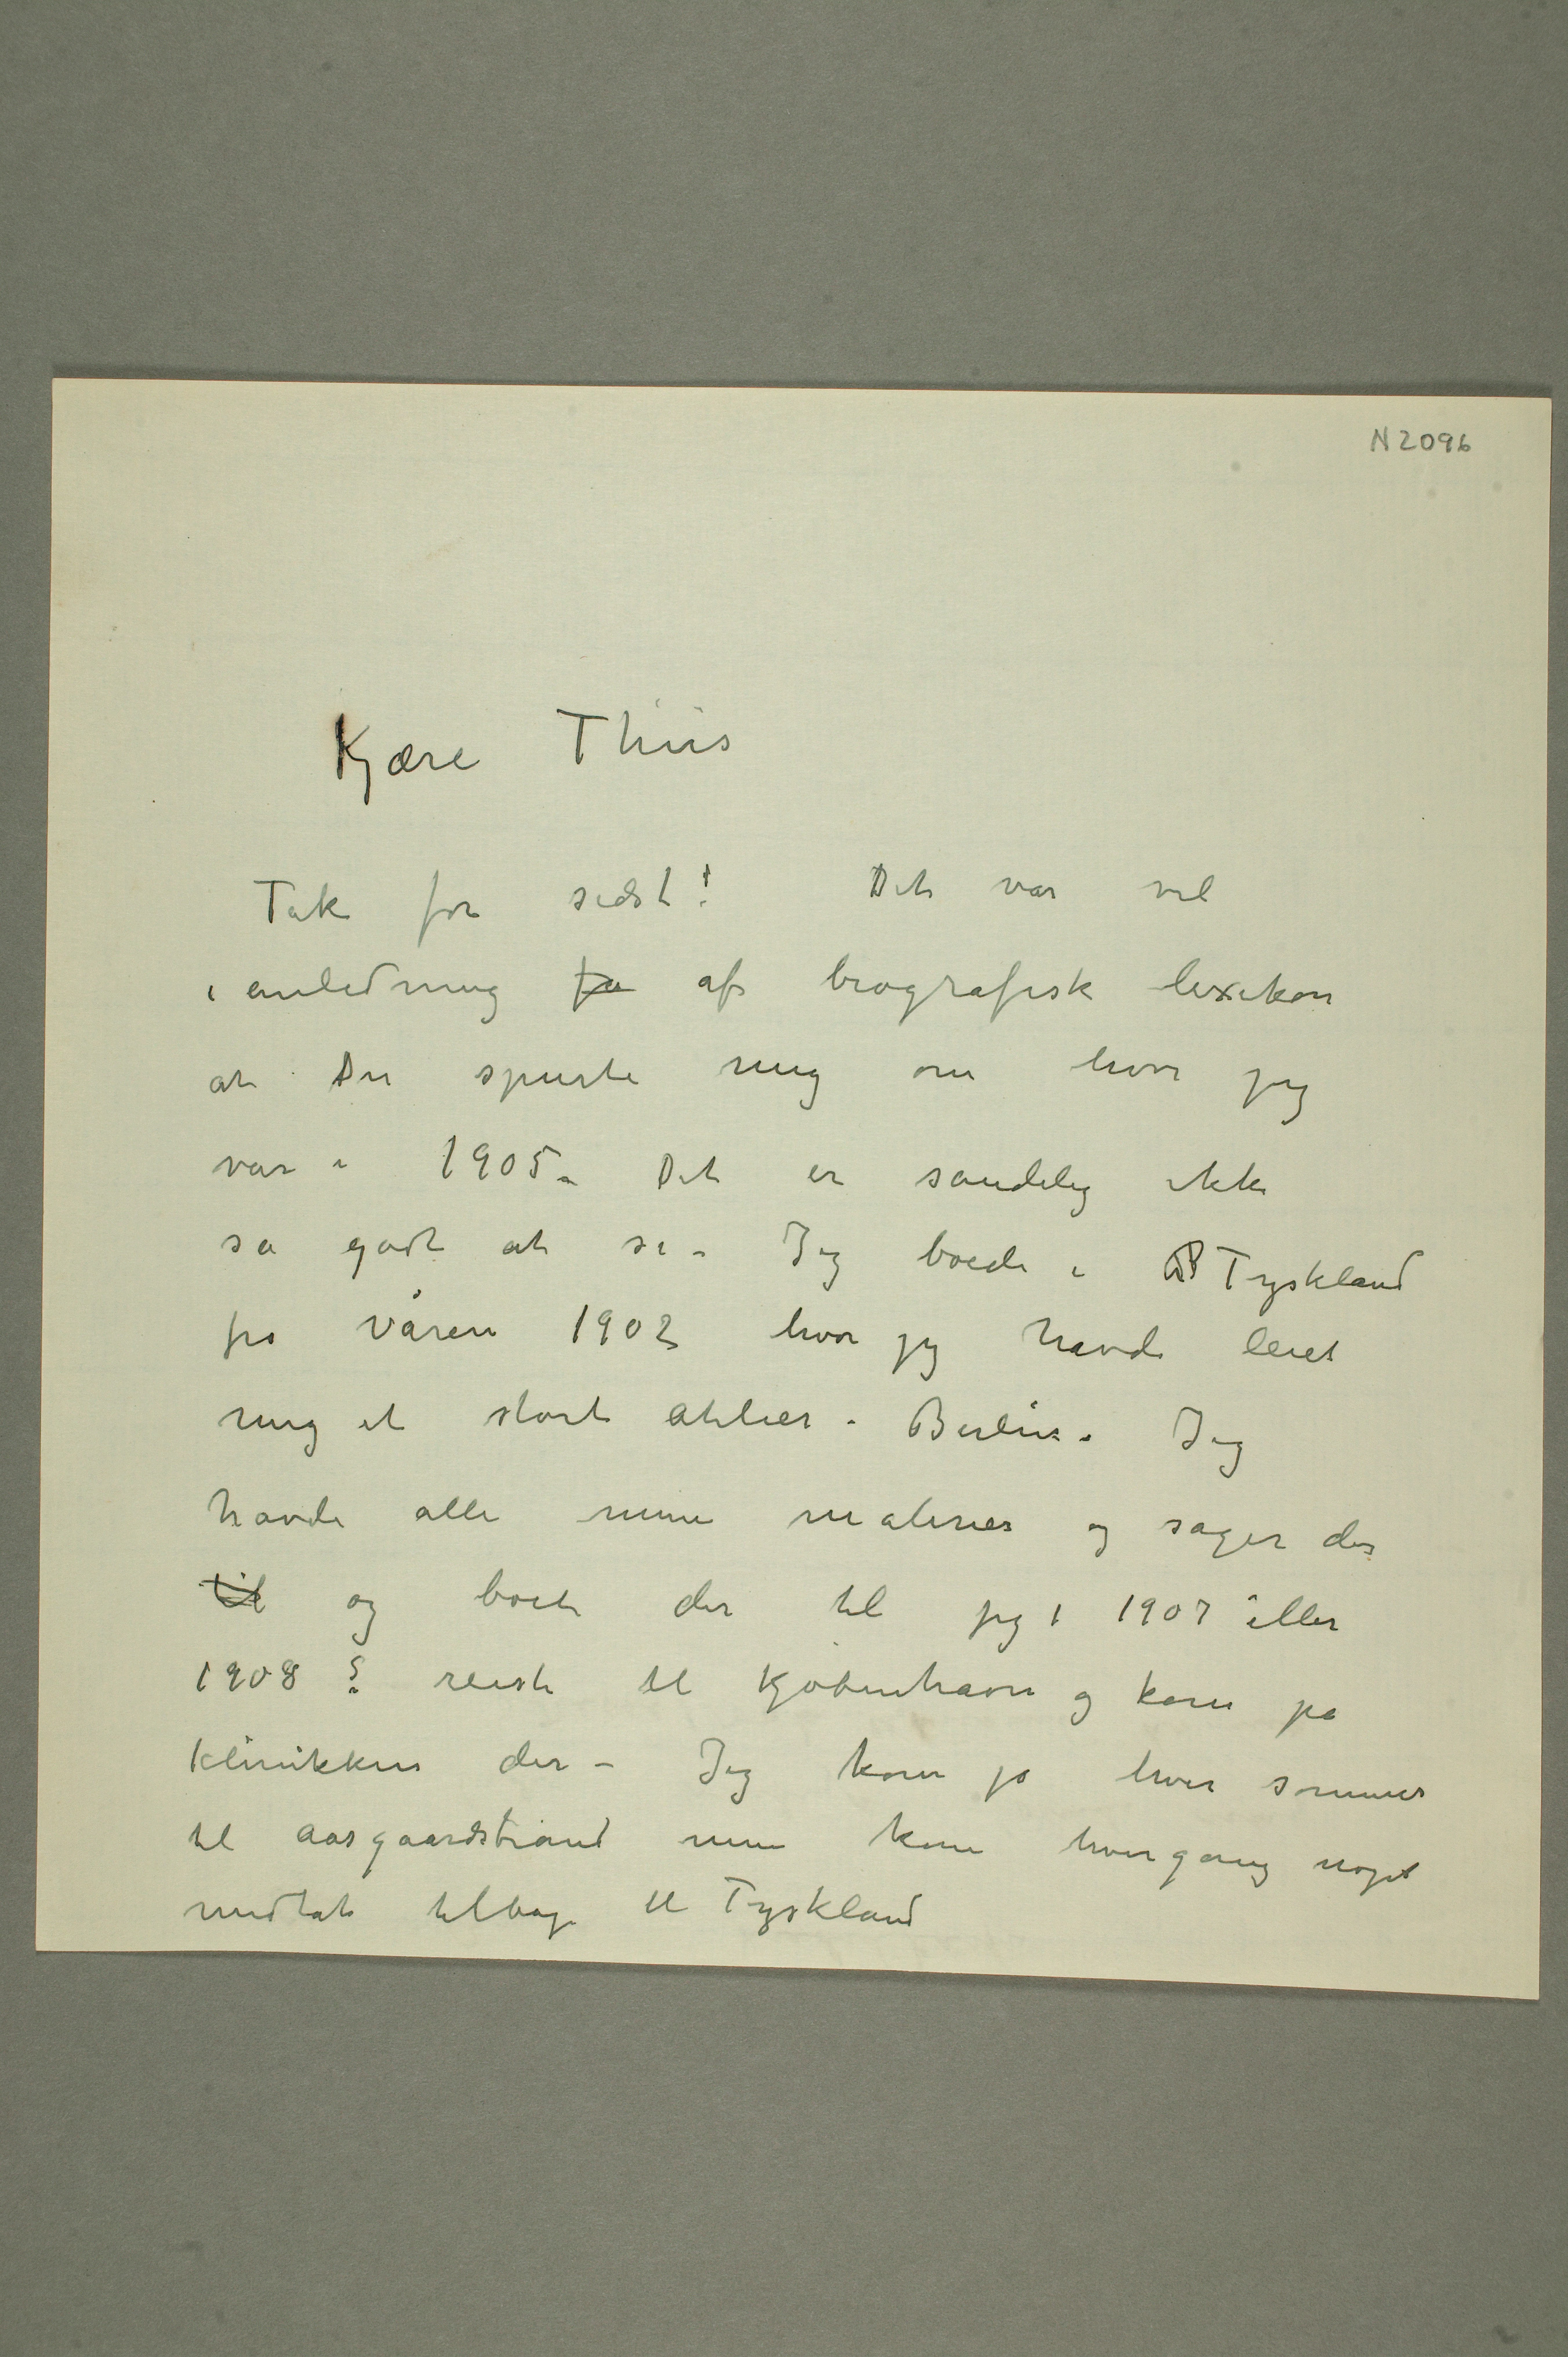 N 2096
Kjære Thiis
Tak for sidst! Det var vel
i anledning fo af biografisk lexikon
at Du spurte mig om hvor jeg
var i 1905 – Det er sandelig ikke
så godt at si – Jeg boede i Tyskland
fra våren 1902 hvor jeg havde leiet
mig et stort atelier i Berlin. Jeg
havde alle mine malerier og sager der
til og boete der til jeg i 1907 eller
1908? reiste til Kjøbenhavn og kom på
Klinikken der – Jeg kom jo hver sommer
til Aasgaardstrand men kom hvergang noget
medtat tilbage til Tyskland